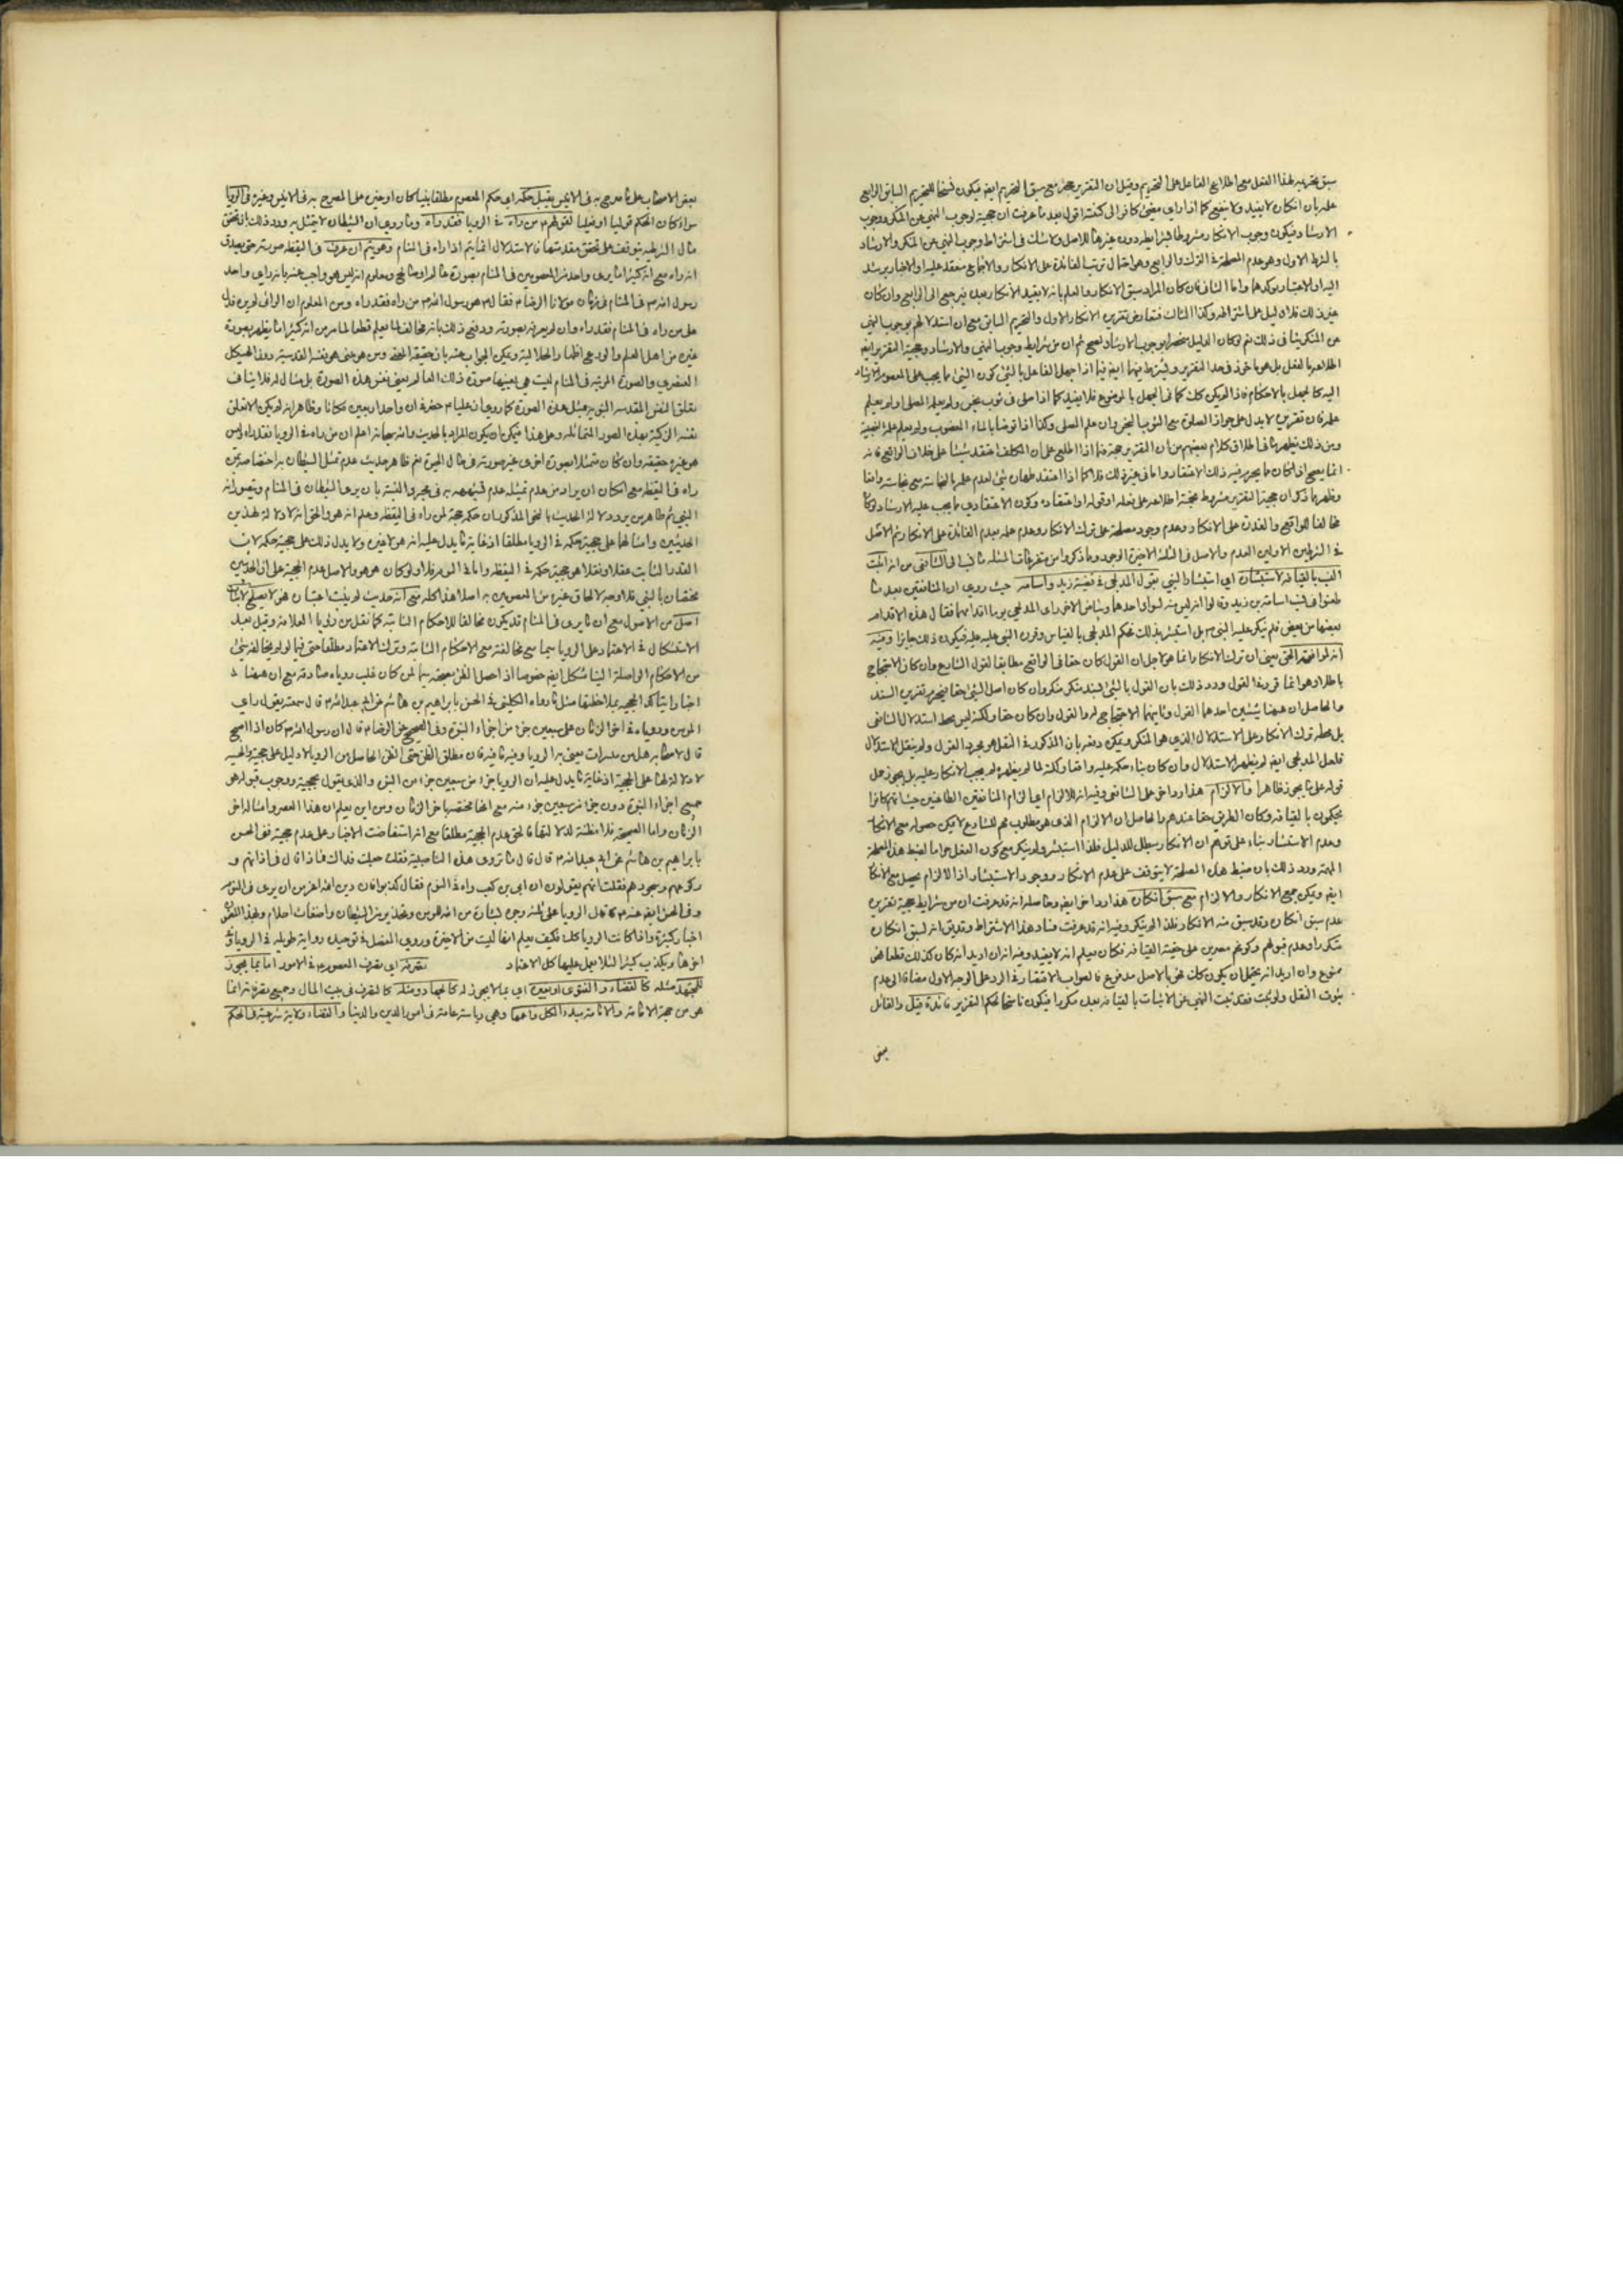 سبق تحريمه لهذا الفعل مع اطلاع الفاعل على التحريم وقيل ان التقرير مع سبق التحريم ايضا يكون نسخا للتحريم السابق الرابع
علمه بان انكاره لا يفيد ولا ينفع كما اذا راى مضى كافر الى كنيسة اقول بعد ما عرفت ان حجيته لوجوب النهي عن المنكر ووجوب
الارشاد فيكون وجوب الانكار مشروطا بشرايطه دون غيرها للاصل ولا شك في اشتراط وجوب النهي عن المنكر والارشاد
بالشرط الاول وهو عدم المصلحة في الترك والرابع وهو احتمال ترتب الفائدة على الانكار والاجماع منعقد عليه والاخبار يرشد
اليه والاعتبار يوكدهما واما الثاني فان كان المراد سبق الانكار والعلم بانه لا يفيد الانكار بعده فيرجع الى الرابع وان كان
غير ذلك فلا دليل على اشتراطه وكذا الثالث فتعارض تقريره الانكار الاول والتحريم السابق مع ان استدلالهم بوجوب النهي
عن المنكر ينافي ذلك نعم لو كان الدليل منحصرا بوجوب الارشاد لصح ثم ان من شرايط وجوب النهي والارشاد وحجية التقرير ايضا
اطلاعه بالفعل بل هو ماخوذ في حد التقرير ويشترط فيهما ايضا فيما اذا جهل الفاعل بالشئ كون الشئ مما يجب على المعصوم الارشاد
اليه كالجهل بالاحكام فاذا لم يكن كذلك كما في الجهل بالموضوع فلا يفيد كما اذا صلى في ثوب نجس ولم يعلم المصلي او لم يعلم
علمه فان تقريره لا يدل على جواز الصلوة مع الثوب النجس وان علم المصلي وكذا اذا توضا بالماء المغصوب ولم يعلم علمه بالغصبية
ومن ذلك يظهر ما في اطلاق كلام بعضهم من ان التقرير حجة فيما اذا اطلع على ان المكلف اعتقد شيئا على خلاف الواقع فانه
انما يصح اذا كان مما يحرم فيه ذلك الاعتقاد واما في غير ذلك فلا كما اذا اعتقد طهارة شئ لعدم علمه بالنجاسة مع نجاسته واقعا
وظهر مما ذكر ان حجية التقرير مشروط بحجية اطلاعه على فعله او قوله او اعتقاده وكون الاعتقادي مما يجب عليه الارشاد لو كان
مخالفا للواقع والقدرة على الانكار وعدم وجود مصلحة على ترك الانكار وعدم علمه بعدم الفائدة على الانكار ثم الاصل
في الشرطين الاولين العدم والاصل في الثلثة الاخيرة الوجود وما ذكروا من متفرعات المسئلة ما نسب الى الشافعي من انه اثبت
النسب بالقيافة لاستبشاره اي استبشار النبي بقول المدلجي في قضية زيد واسامة حيث روي ان المنافقين بعد ما
طعنوا في نسب اسامة بن زيد وقالوا انه ليس منه لسواد احدهما وبياض الاخر راى المدلجي يوما اقدامهما فقال هذه الاقدام
بعضها من بعض فلم ينكر عليه النبي ص بل استبشر بذلك فحكم المدلجي بالقياس وقرره النبي عليه فيكون ذلك جايزا وفيه
انه لموافقة الحق يعني ان ترك الانكار انما هو لاجل ان القول كان حقا في الواقع مطابقا لقول الشارع وان كان الاحتجاج
باطلا وهو انما قرر هذا القول ورد ذلك بان القول بالشئ لسند منكر منكر وان كان اصل الشئ حقا فيحرم تقرير السند
والحاصل ان ههنا شيئين احدهما القول وثانيهما الاحتجاج له والقول وان كان حقا ولكنه ليس محط استدلال الشافعي
بل محطه ترك الانكار وعلى الاستدلال الذي هو المنكر ويمكن دفعه بان المذكور في النقل هو مجرد القول ولم ينقل الاستدلال
فلعل المدلجي ايضا لم يظهر الاستدلال وان كان بناء حكمه عليه واقعا ولكنه لما لم يظهره لم يجب الانكار عليه بل يجوز حمل
قوله على ما يجوز ظاهرا والالزام هذا رد اخر على الشافعي وفيه انه للالزام اي الزام المنافقين الطاعنين حيث انهم كانوا
يحكمون بالقيافة وكان الطريق حقا عندهم والحاصل ان الالزام الذي هو مطلوب مهم للشارع لا يمكن حصوله مع الانكار
وعدم الاستبشار بناء على توهم ان الانكار مبطل للدليل فلذا استبشر ولم ينكر مع كون الفعل حراما لضبط هذه المصلحة
المهمة ورد ذلك بان ضبط هذه المصلحة لا يتوقف على عدم الانكار ووجود الاستبشار اذ الالزام يحصل مع الانكار
ايضا ويمكن جمع الانكار والالزام مع سبق انكاره هذا رد اخر ايضا وحاصله انه قد عرفت ان من شرايط حجية تقريره
عدم سبق انكاره وقد سبق منه الانكار فلذا لم ينكر وفيه انه قد عرفت فساد هذا الاشتراط وقد يق انه لسبق انكاره
منكرا وعدم قبولهم وكونهم مصرين على حقية القيافة فكان يعلم انه لا يفيد وفيه انه ان اريد انه كان كذلك قطعا فهو
ممنوع وان اريد انه يحتمل ان يكون كك فهو بالاصل مدفوع فالصواب الاقتصار في الرد على الوجه الاول مضافا الى عدم
ثبوت النقل ولو ثبت فقد ثبت النهي عن الاثبات بالقيافة بعده مكررا فيكون ناسخا لحكم التقرير فائدة قيل والقائل
بعض
بعض الاصحاب على ما صرح به في الانيس يقبل حكمه اي حكم المعصوم مطلقا نبيا كان او غيره على المصرح به في الانيس وغيره في الرويا
سواء كان الحكم قوليا او فعليا لقولهم ص من راه في الرويا فقد راه وما روي ان الشيطان لا يتمثل به ورد ذلك بان تحقق
مثال الشرطية يتوقف على تحقق مقدمتها فالاستدلال انما يتم اذا راه في المنام وهو يتم ان عرف في اليقظة صورته حتى يصدق
انه راه مع انه كثيرا ما يرى واحد من المعصومين في المنام بصورة عالم او صالح ومعلوم انه ليس هو واجيب عنه بانه راى واحد
رسول الله ص في المنام في زمان مولانا الرضا ع فقال ع هو رسول الله ص من راه فقد راه ومن المعلوم ان الرائي لم يره فدل
على من راه في المنام فقد راه وان لم يعرفه بصورته ودفع ذلك بانه مخالف لما يعلم قطعا لما مر من انه كثيرا ما يظهر بصورة
غيره من اهل العلم والورع اظهارا لجلاله ويمكن الجواب عنه بان حقيقة الحجة ومن هو حتى هو نفسه القدسية دون الهيكل
العنصري والصورة المرئية في المنام ليست هي بعينها صورة ذلك العالم يعني نفس هذه الصورة بل مثال له فلا ينافي
تعلق النفس المقدسة النبوية بمثل هذه الصورة كما روي ان عليا ع حضر في ان واحد اربعين مكانا وظاهر انه لم يكن الا تعلق
نفسه الزكية بهذه الصور المتماثلة وعلى هذا فيمكن ان يكون المراد بالحديث والله سبحانه اعلم ان من راه في الرويا فقد راه وليس
هو غيره حقيقة وان كان متمثلا بصورة اخرى غير صورته في مثال الحيوة نعم ظاهر حديث عدم تمثل الشيطان به اختصاصه بمن
راه في اليقظة مع امكان ان يراد من عدم تمثيله عدم تشبهه به في مجرد النسبة بان يرى الشيطان في المنام ويتصور انه
النبي ثم ظاهر من يرد دلالة الحديث بالنحو المذكور ان حكمه حجة لمن راه في اليقظة وعلم انه هو والحق انه لا دلالة لهذين
الحديثين وامثالهما على حجية حكمه في الرويا مطلقا اذ غاية ما يدل عليه انه هو لا غيره ولا يدل ذلك على حجية حكمه لان
القدر الثابت عقلا ونقلا هو حجية حكمه في اليقظة واما في النوم فلا ولو كان هو هو والاصل عدم الحجية على ان الحديثين
مختصان بالنبي فلا وجه لالحاق غيره من المعصومين به اصلا هذا كله مع انه حديث لم يثبت اعتباره فهو لا يصلح لاثبات
اصل من الاصول مع ان ما يرى في المنام قد يكون مخالفا للاحكام الثابتة كما نقل من رؤيا العلامة وقيل بعد
الاستشكال في الاعتماد على الرويا سيما مع مخالفته مع الاحكام الثابتة وترك الاعتماد مطلقا حتى فيما لو لم يخالفه شئ
من الاحكام الواصلة الينا مشكل ايضا خصوصا اذا حصل الظن بصحته سيما لمن كان غلب روياه صادقة مع ان ههنا
اخبارا يتاكد الحجية بملاحظتها مثل ما رواه الكليني في الحسن بابراهيم بن هاشم عن ابي عبد الله ع قال سمعته يقول راي
المومن وروياه في اخر الزمان على سبعين جزء من اجزاء النبوة وفي الصحيح عن الرضا ع قال ان رسول الله ص كان اذا اصبح
قال لاصحابه هل من مبشرات يعني به الرويا وفيه ما فيه فان مطلق الظن حتى الظن الحاصل من الرويا لا دليل على حجيته والخبرين
لا دلالة لهما على الحجية اذ غاية ما يدل عليه ان الرويا جزء من سبعين جزء من النبوة والذي يقول بحجيته ووجوب قبوله هو
جميع اجزاء النبوة دون جزء من سبعين جزء منه مع انها مختصة باخر الزمان ومن اين يعلم ان هذا العصر وامثاله اخر
الزمان واما الصحيحة فلا مظنة لدلالتها فالحق عدم الحجية مطلقا مع انه استفاضت الاخبار على عدم حجيته ففي الحسن
بابراهيم بن هاشم عن ابي عبد الله ع قال قال ما تروى هذه الناصبية فقلت جعلت فداك فيماذا قال في اذانهم و
ركوعهم وسجودهم فقلت انهم يقولون ان ابي بن كعب راه في النوم فقال كذبوا فان دين الله اعز من ان يرى في النوم
وفي الحسن ايضا عنه ع قال الرويا على ثلثة وجوه بشارة من الله للمومن وتحذير من الشيطان واضغاث احلام وبهذا التقسيم
اخبار كثيرة واذا كانت الرويا كذلك فكيف يعلم انها ليست من الاخيرة وروى المفضل في توحيده رواية طويلة في الرويا في
اخرها ويكذب كثيرا لئلا يعمل عليها كل الاعتماد تصرفه اي تصرف المعصوم ع في الامور اما بما يجوز
للمجتهد مثله كالقضاء والفتوى او بغيره اي بما لا يجوز له كالجهاد ومثله كالتصرف في بيت المال وجميع تصرفه انما
هو من جهة الامامة والامامة مبدء الكل واعمها وهي رياسة عامة في امور الدين والدنيا والقضاء ولاية شرعية في الحكم